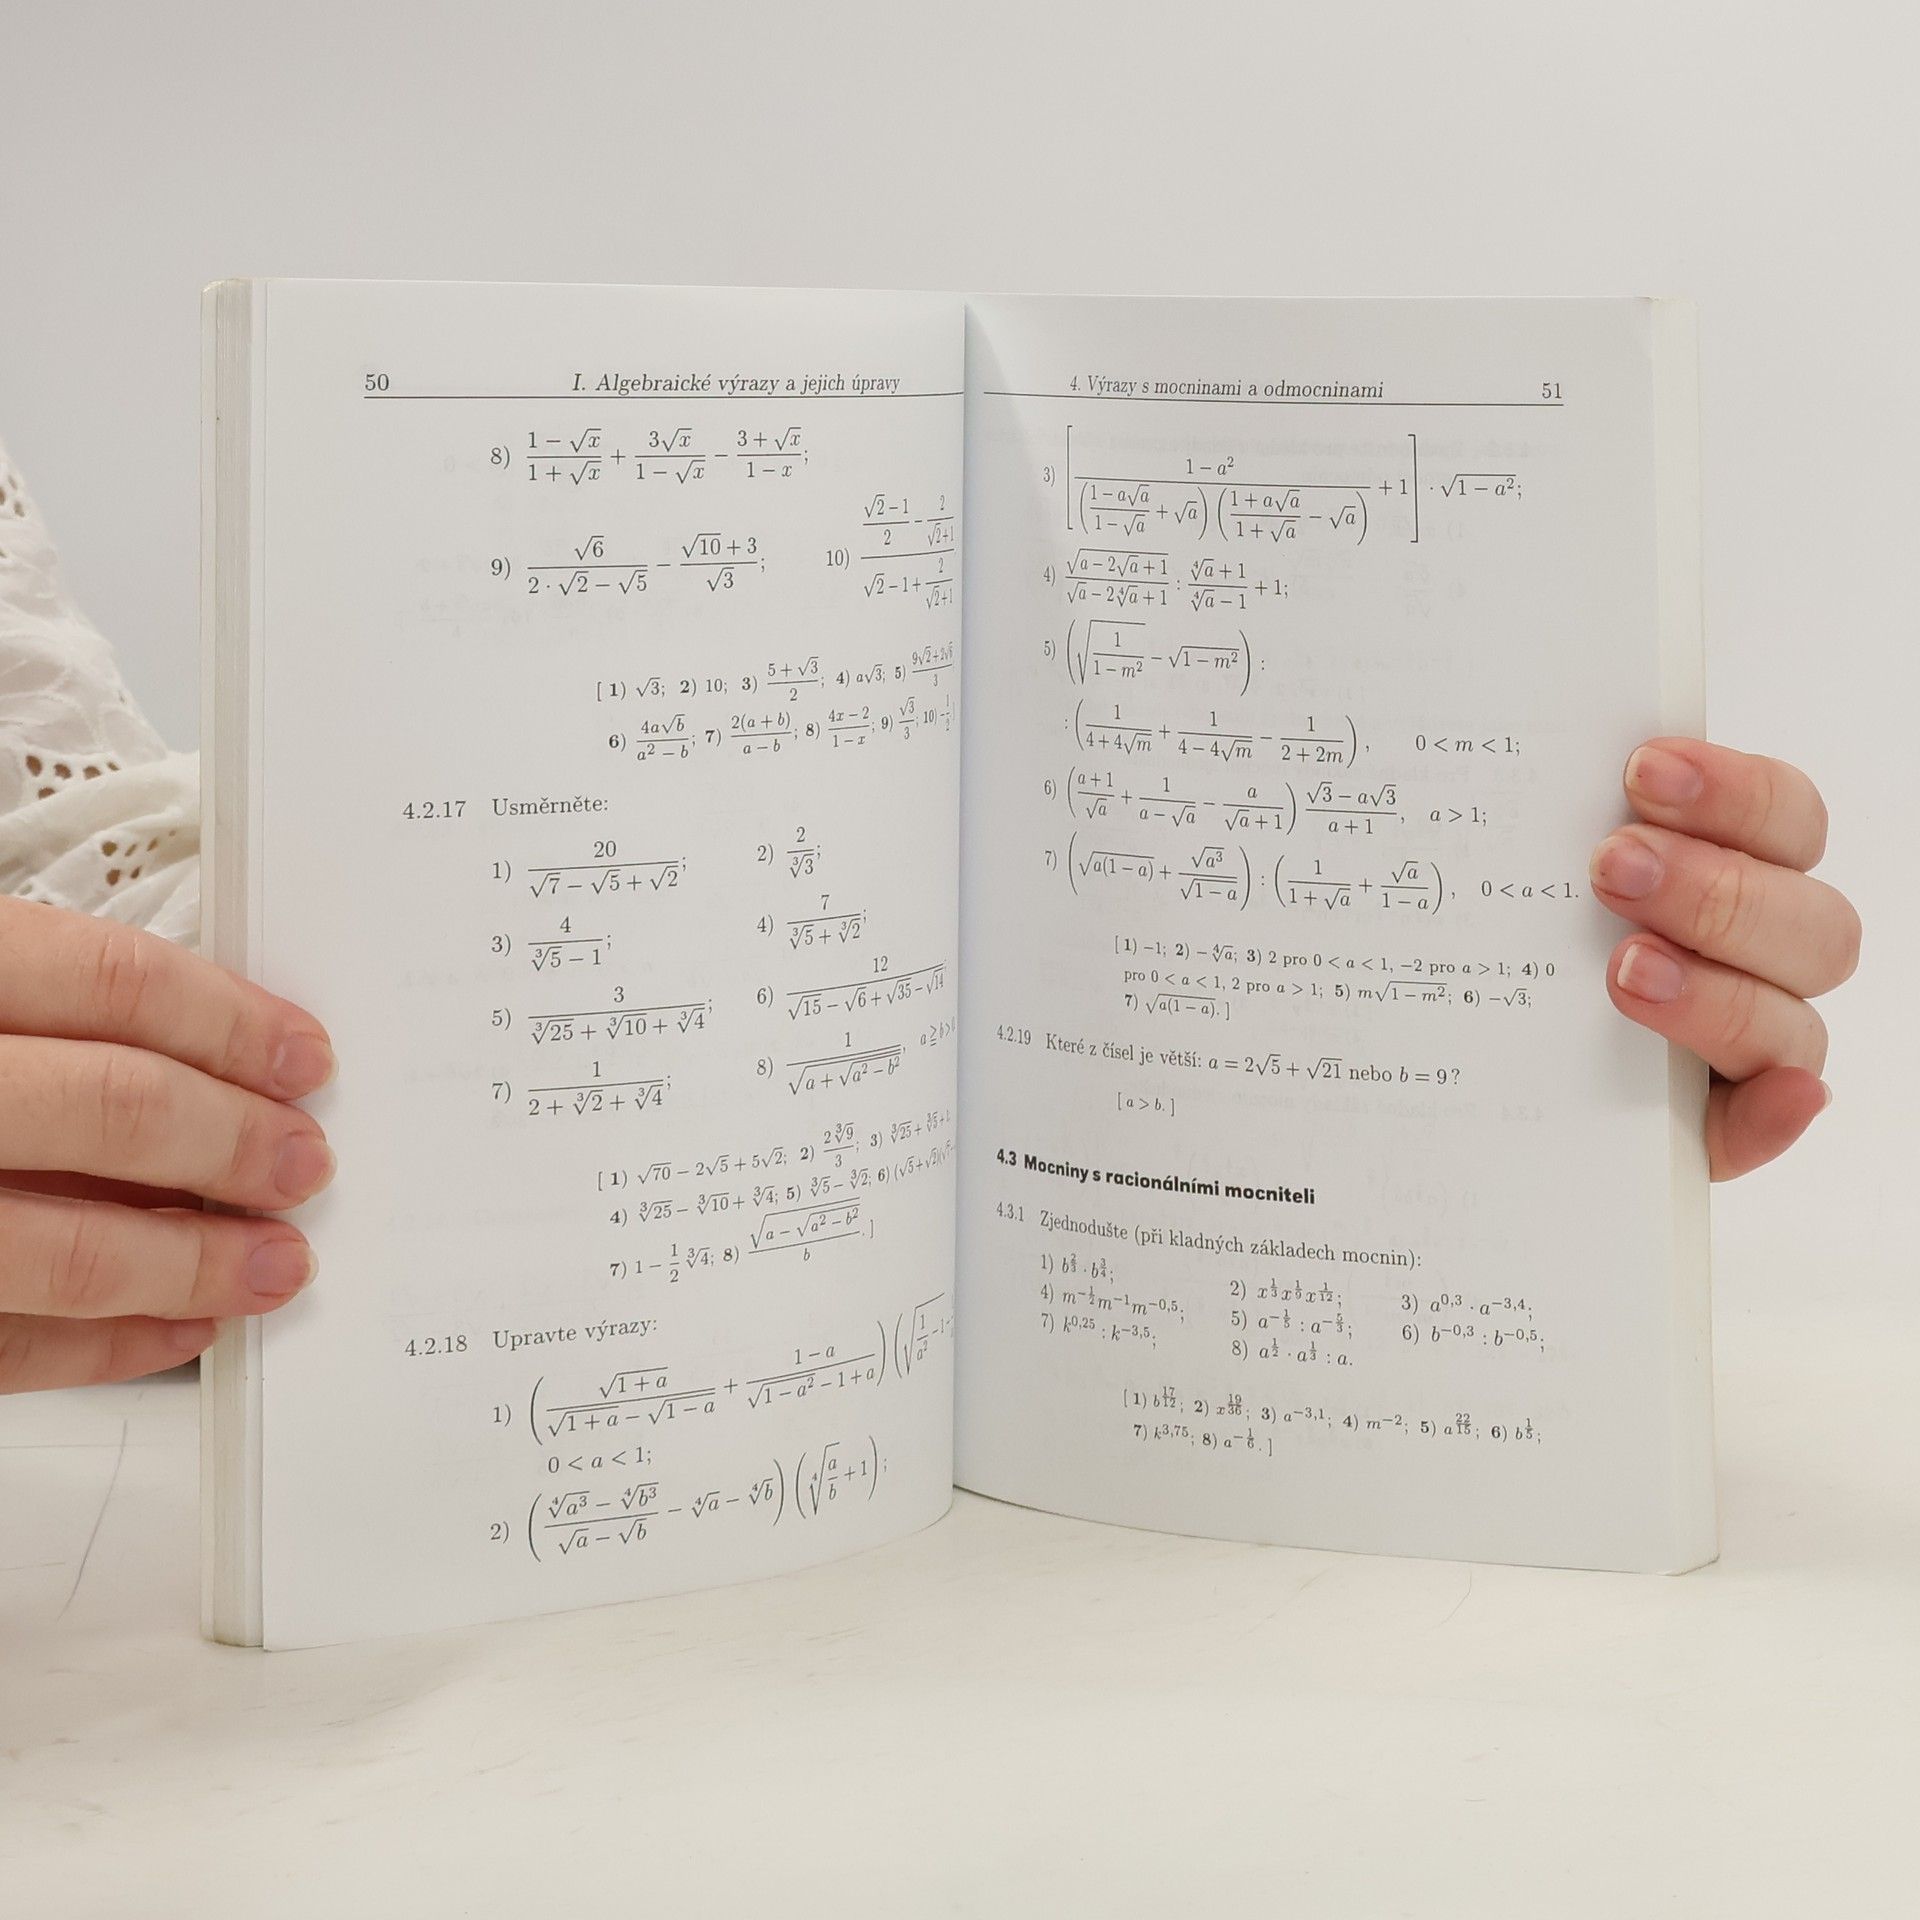 50 I. Algebraické výrazy a jejich úpravy
8) \frac{1-\sqrt{x}}{1+\sqrt{x}} + \frac{3\sqrt{x}}{1-\sqrt{x}} - \frac{3+\sqrt{x}}{1-x};
9) \frac{\sqrt{6}}{2\cdot\sqrt{2}-\sqrt{5}} - \frac{\sqrt{10}+3}{\sqrt{3}}; 10) \frac{\frac{\sqrt{2}-1}{2}-\frac{2}{\sqrt{2}+1}}{\sqrt{2}-1+\frac{2}{\sqrt{2}+1}}
[ 1) \sqrt{3}; 2) 10; 3) \frac{5+\sqrt{3}}{2}; 4) a\sqrt{3}; 5) \frac{9\sqrt{2}+2\sqrt{6}}{3}
6) \frac{4a\sqrt{b}}{a^2-b}; 7) \frac{2(a+b)}{a-b}; 8) \frac{4x-2}{1-x}; 9) \frac{\sqrt{3}}{3}; 10) -\frac{1}{2}]
4.2.17 Usměrněte:
1) \frac{20}{\sqrt{7}-\sqrt{5}+\sqrt{2}}; 2) \frac{2}{\sqrt[3]{3}};
3) \frac{4}{\sqrt[3]{5}-1}; 4) \frac{7}{\sqrt[3]{5}+\sqrt[3]{2}};
5) \frac{3}{\sqrt[3]{25}+\sqrt[3]{10}+\sqrt[3]{4}}; 6) \frac{12}{\sqrt{15}-\sqrt{6}+\sqrt{35}-\sqrt{14}};
7) \frac{1}{2+\sqrt[3]{2}+\sqrt[3]{4}}; 8) \frac{1}{\sqrt{a+\sqrt{a^2-b^2}}}, a ≧ b > 0
[ 1) \sqrt{70}-2\sqrt{5}+5\sqrt{2}; 2) \frac{2\sqrt[3]{9}}{3}; 3) \sqrt[3]{25}+\sqrt[3]{5}+1
4) \sqrt[3]{25}-\sqrt[3]{10}+\sqrt[3]{4}; 5) \sqrt[3]{5}-\sqrt[3]{2}; 6) (\sqrt{5}+\sqrt{2})(\sqrt{7}-
7) 1-\frac{1}{2}\sqrt[3]{4}; 8) \frac{\sqrt{a-\sqrt{a^2-b^2}}}{b}. ]
4.2.18 Upravte výrazy:
1) \left(\frac{\sqrt{1+a}}{\sqrt{1+a}-\sqrt{1-a}} + \frac{1-a}{\sqrt{1-a^2}-1+a}\right)\left(\sqrt{\frac{1}{a^2}-1}-
0 < a < 1;
2) \left(\frac{\sqrt[4]{a^3}-\sqrt[4]{b^3}}{\sqrt{a}-\sqrt{b}} - \sqrt[4]{a}-\sqrt[4]{b}\right)\left(\sqrt[4]{\frac{a}{b}}+1\right);
4. Výrazy s mocninami a odmocninami 51
3) \left[\frac{1-a^2}{\left(\frac{1-a\sqrt{a}}{1-\sqrt{a}}+\sqrt{a}\right)\left(\frac{1+a\sqrt{a}}{1+\sqrt{a}}-\sqrt{a}\right)}+1\right]\cdot\sqrt{1-a^2};
4) \frac{\sqrt{a-2\sqrt{a}+1}}{\sqrt{a}-2\sqrt[4]{a}+1} : \frac{\sqrt[4]{a}+1}{\sqrt[4]{a}-1}+1;
5) \left(\sqrt{\frac{1}{1-m^2}}-\sqrt{1-m^2}\right) :
: \left(\frac{1}{4+4\sqrt{m}}+\frac{1}{4-4\sqrt{m}}-\frac{1}{2+2m}\right), 0 < m < 1;
6) \left(\frac{a+1}{\sqrt{a}}+\frac{1}{a-\sqrt{a}}-\frac{a}{\sqrt{a}+1}\right)\frac{\sqrt{3}-a\sqrt{3}}{a+1}, a > 1;
7) \left(\sqrt{a(1-a)}+\frac{\sqrt{a^3}}{\sqrt{1-a}}\right) : \left(\frac{1}{1+\sqrt{a}}+\frac{\sqrt{a}}{1-a}\right), 0 < a < 1.
[ 1) -1; 2) -\sqrt[4]{a}; 3) 2 pro 0 < a < 1, -2 pro a > 1; 4) 0
pro 0 < a < 1, 2 pro a > 1; 5) m\sqrt{1-m^2}; 6) -\sqrt{3};
7) \sqrt{a(1-a)}. ]
4.2.19 Které z čísel je větší: a = 2\sqrt{5}+\sqrt{21} nebo b = 9?
[ a > b. ]
4.3 Mocniny s racionálními mocniteli
4.3.1 Zjednodušte (při kladných základech mocnin):
1) b^{\frac{2}{3}}\cdot b^{\frac{3}{4}}; 2) x^{\frac{1}{3}}x^{\frac{1}{9}}x^{\frac{1}{12}}; 3) a^{0,3}\cdot a^{-3,4};
4) m^{-\frac{1}{2}}m^{-1}m^{-0,5}; 5) a^{-\frac{1}{5}} : a^{-\frac{5}{3}}; 6) b^{-0,3} : b^{-0,5};
7) k^{0,25} : k^{-3,5}; 8) a^{\frac{1}{2}}\cdot a^{\frac{1}{3}} : a.
[ 1) b^{\frac{17}{12}}; 2) x^{\frac{19}{36}}; 3) a^{-3,1}; 4) m^{-2}; 5) a^{\frac{22}{15}}; 6) b^{\frac{1}{5}};
7) k^{3,75}; 8) a^{-\frac{1}{6}}. ]